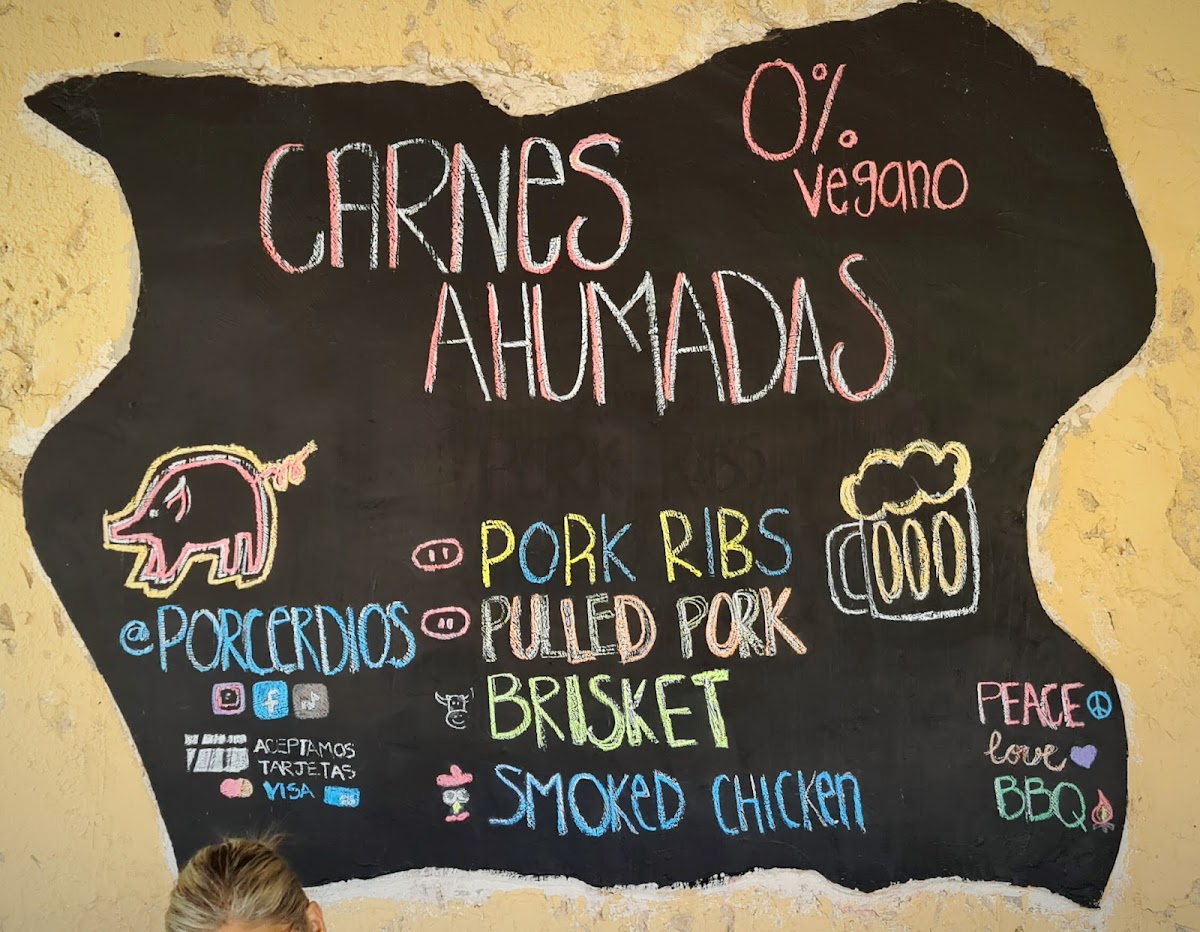 0%
vegano
CARNes
AHUMADAS
PORK RIBS
PULLED PORK
BRISKET
SMOKeD CHICKen
@PORCERDIOS
ACEPTAMOS
TARJETAS
VISA
PEACE
love
BBQ